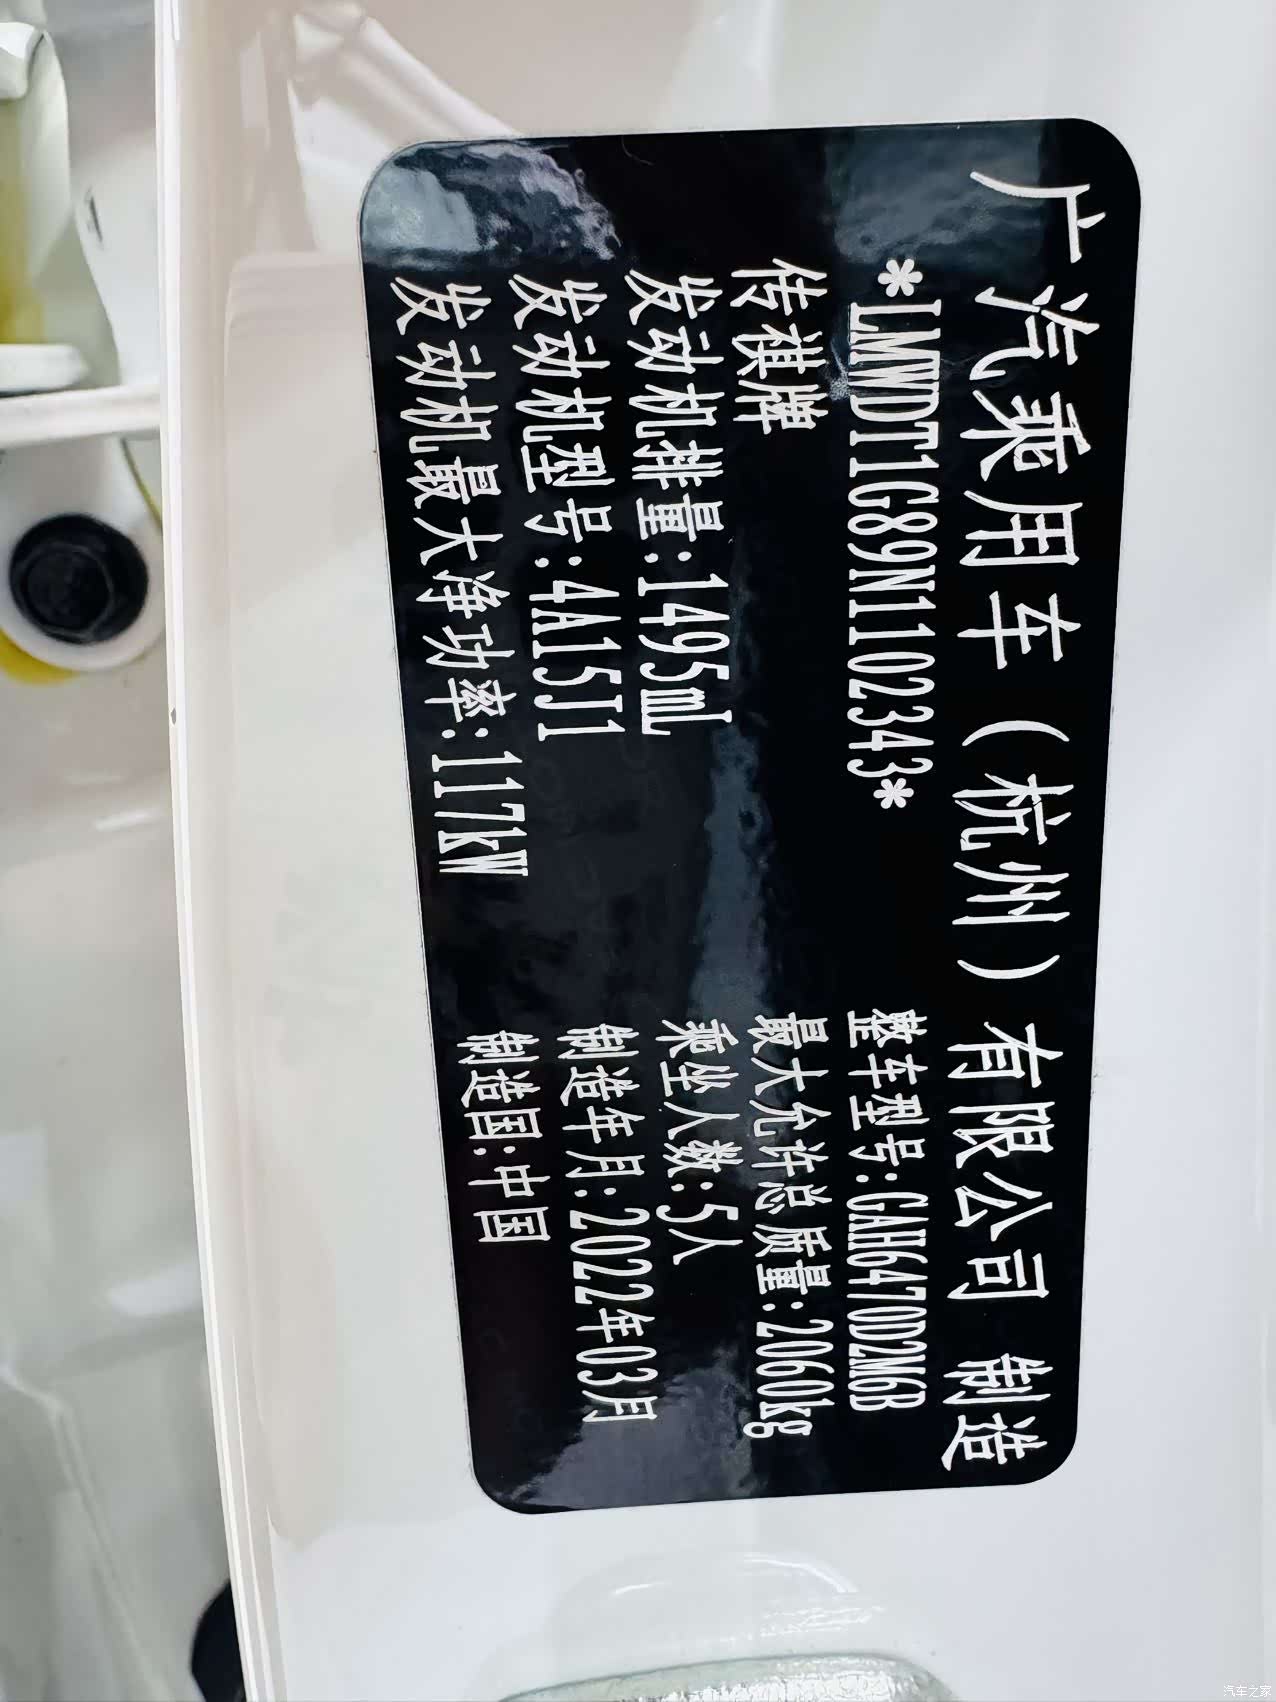 广汽乘用车（杭州）有限公司 制造
*LMWDT1G89N1102343*
传祺牌
发动机排量:1495mL
发动机型号:4A15J1
发动机最大净功率:117kW
整车型号:GAH6470D2M6B
最大允许总质量:2060kg
乘坐人数:5人
制造年月:2022年03月
制造国:中国
汽车之家